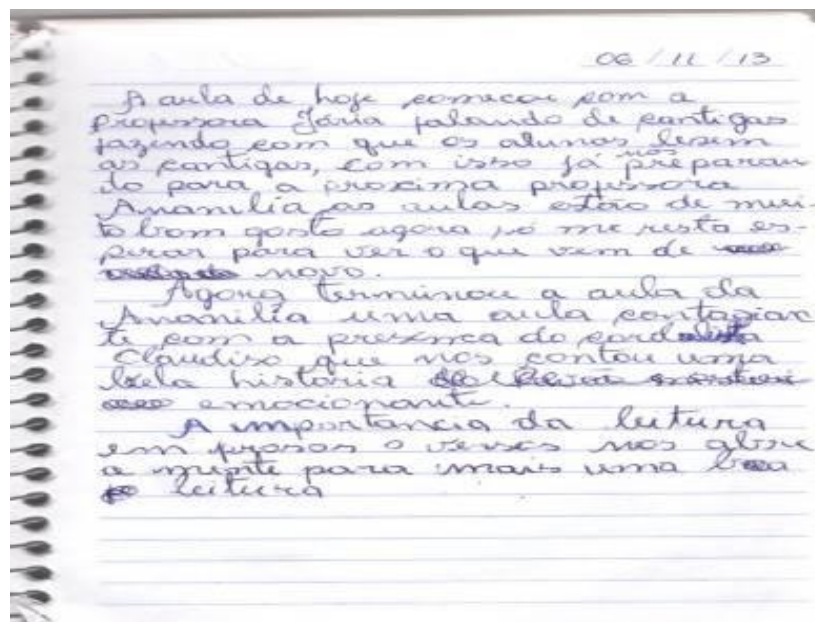 06/11/13
A aula de hoje começou com a
professora Jória falando de cantigas
fazendo com que os alunos lesem
as cantigas, com isso já nos preparan
do para a proxima professora
Ananilia, as aulas estão de mui-
to bom gosto agora só me resta es-
perar para ver o que vem de
novo.
Agora terminou a aula da
Ananilia uma aula contagian
te com a presença do cordelista
Claudiso que nos contou uma
bela história
emocionante.
A importancia da leitura
em prosas e versos nos abre
a mente para mais uma boa
leitura